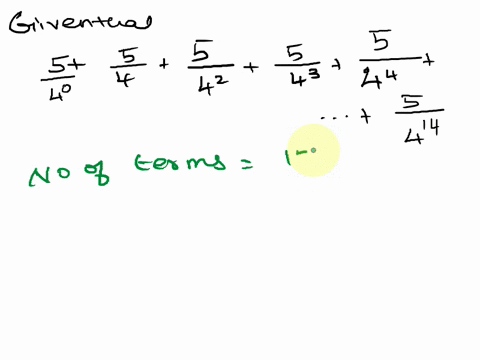 Given that
5/4⁰ + 5/4 + 5/4² + 5/4³ + 5/4⁴ +
... + 5/4¹⁴
No of terms =